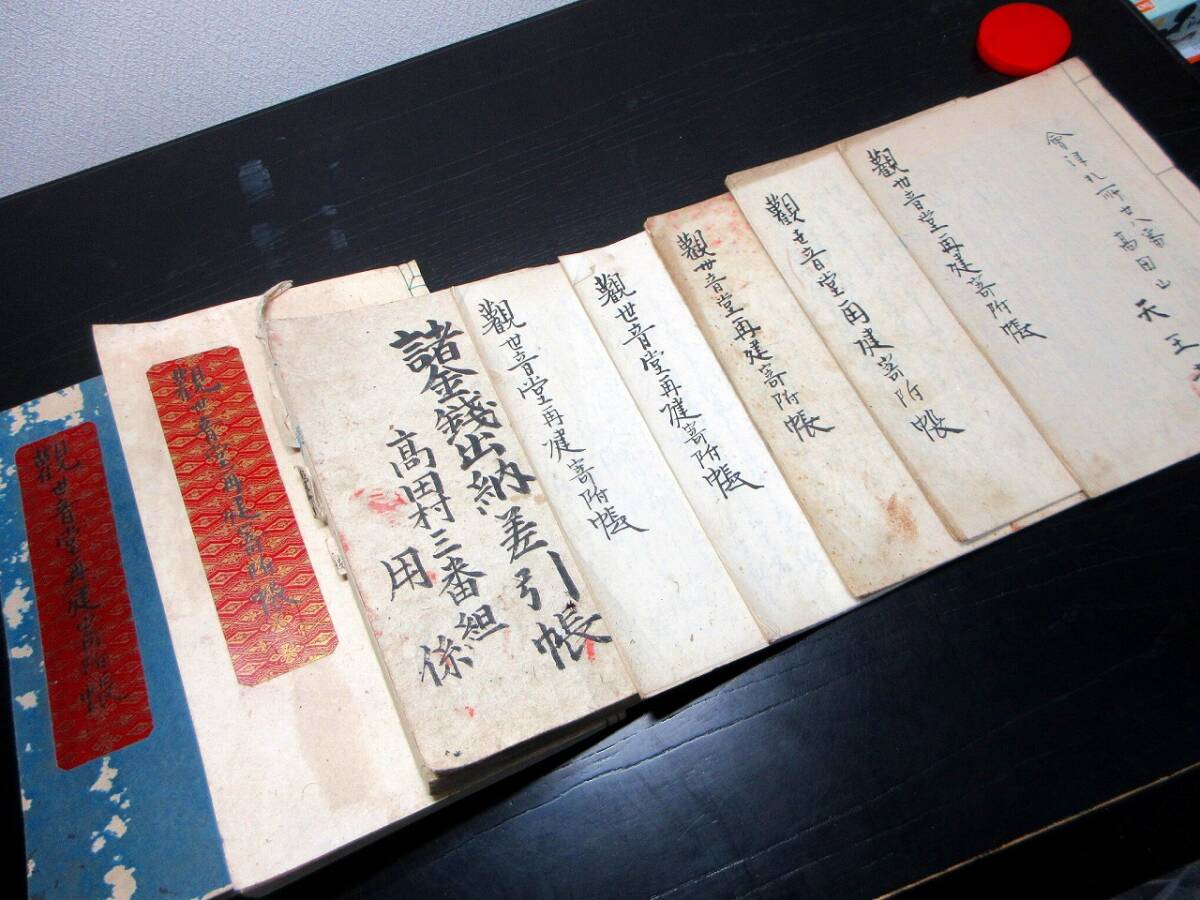 會津札所廿八番
高田山 天王
觀世音堂再建寄附帳
觀世音堂再建寄附帳
觀世音堂再建寄附帳
觀世音堂再建寄附帳
觀世音堂再建寄附帳
諸金錢出納差引帳
高田村三番組
用係
觀世音堂再建寄附帳
觀世音堂再建寄附帳